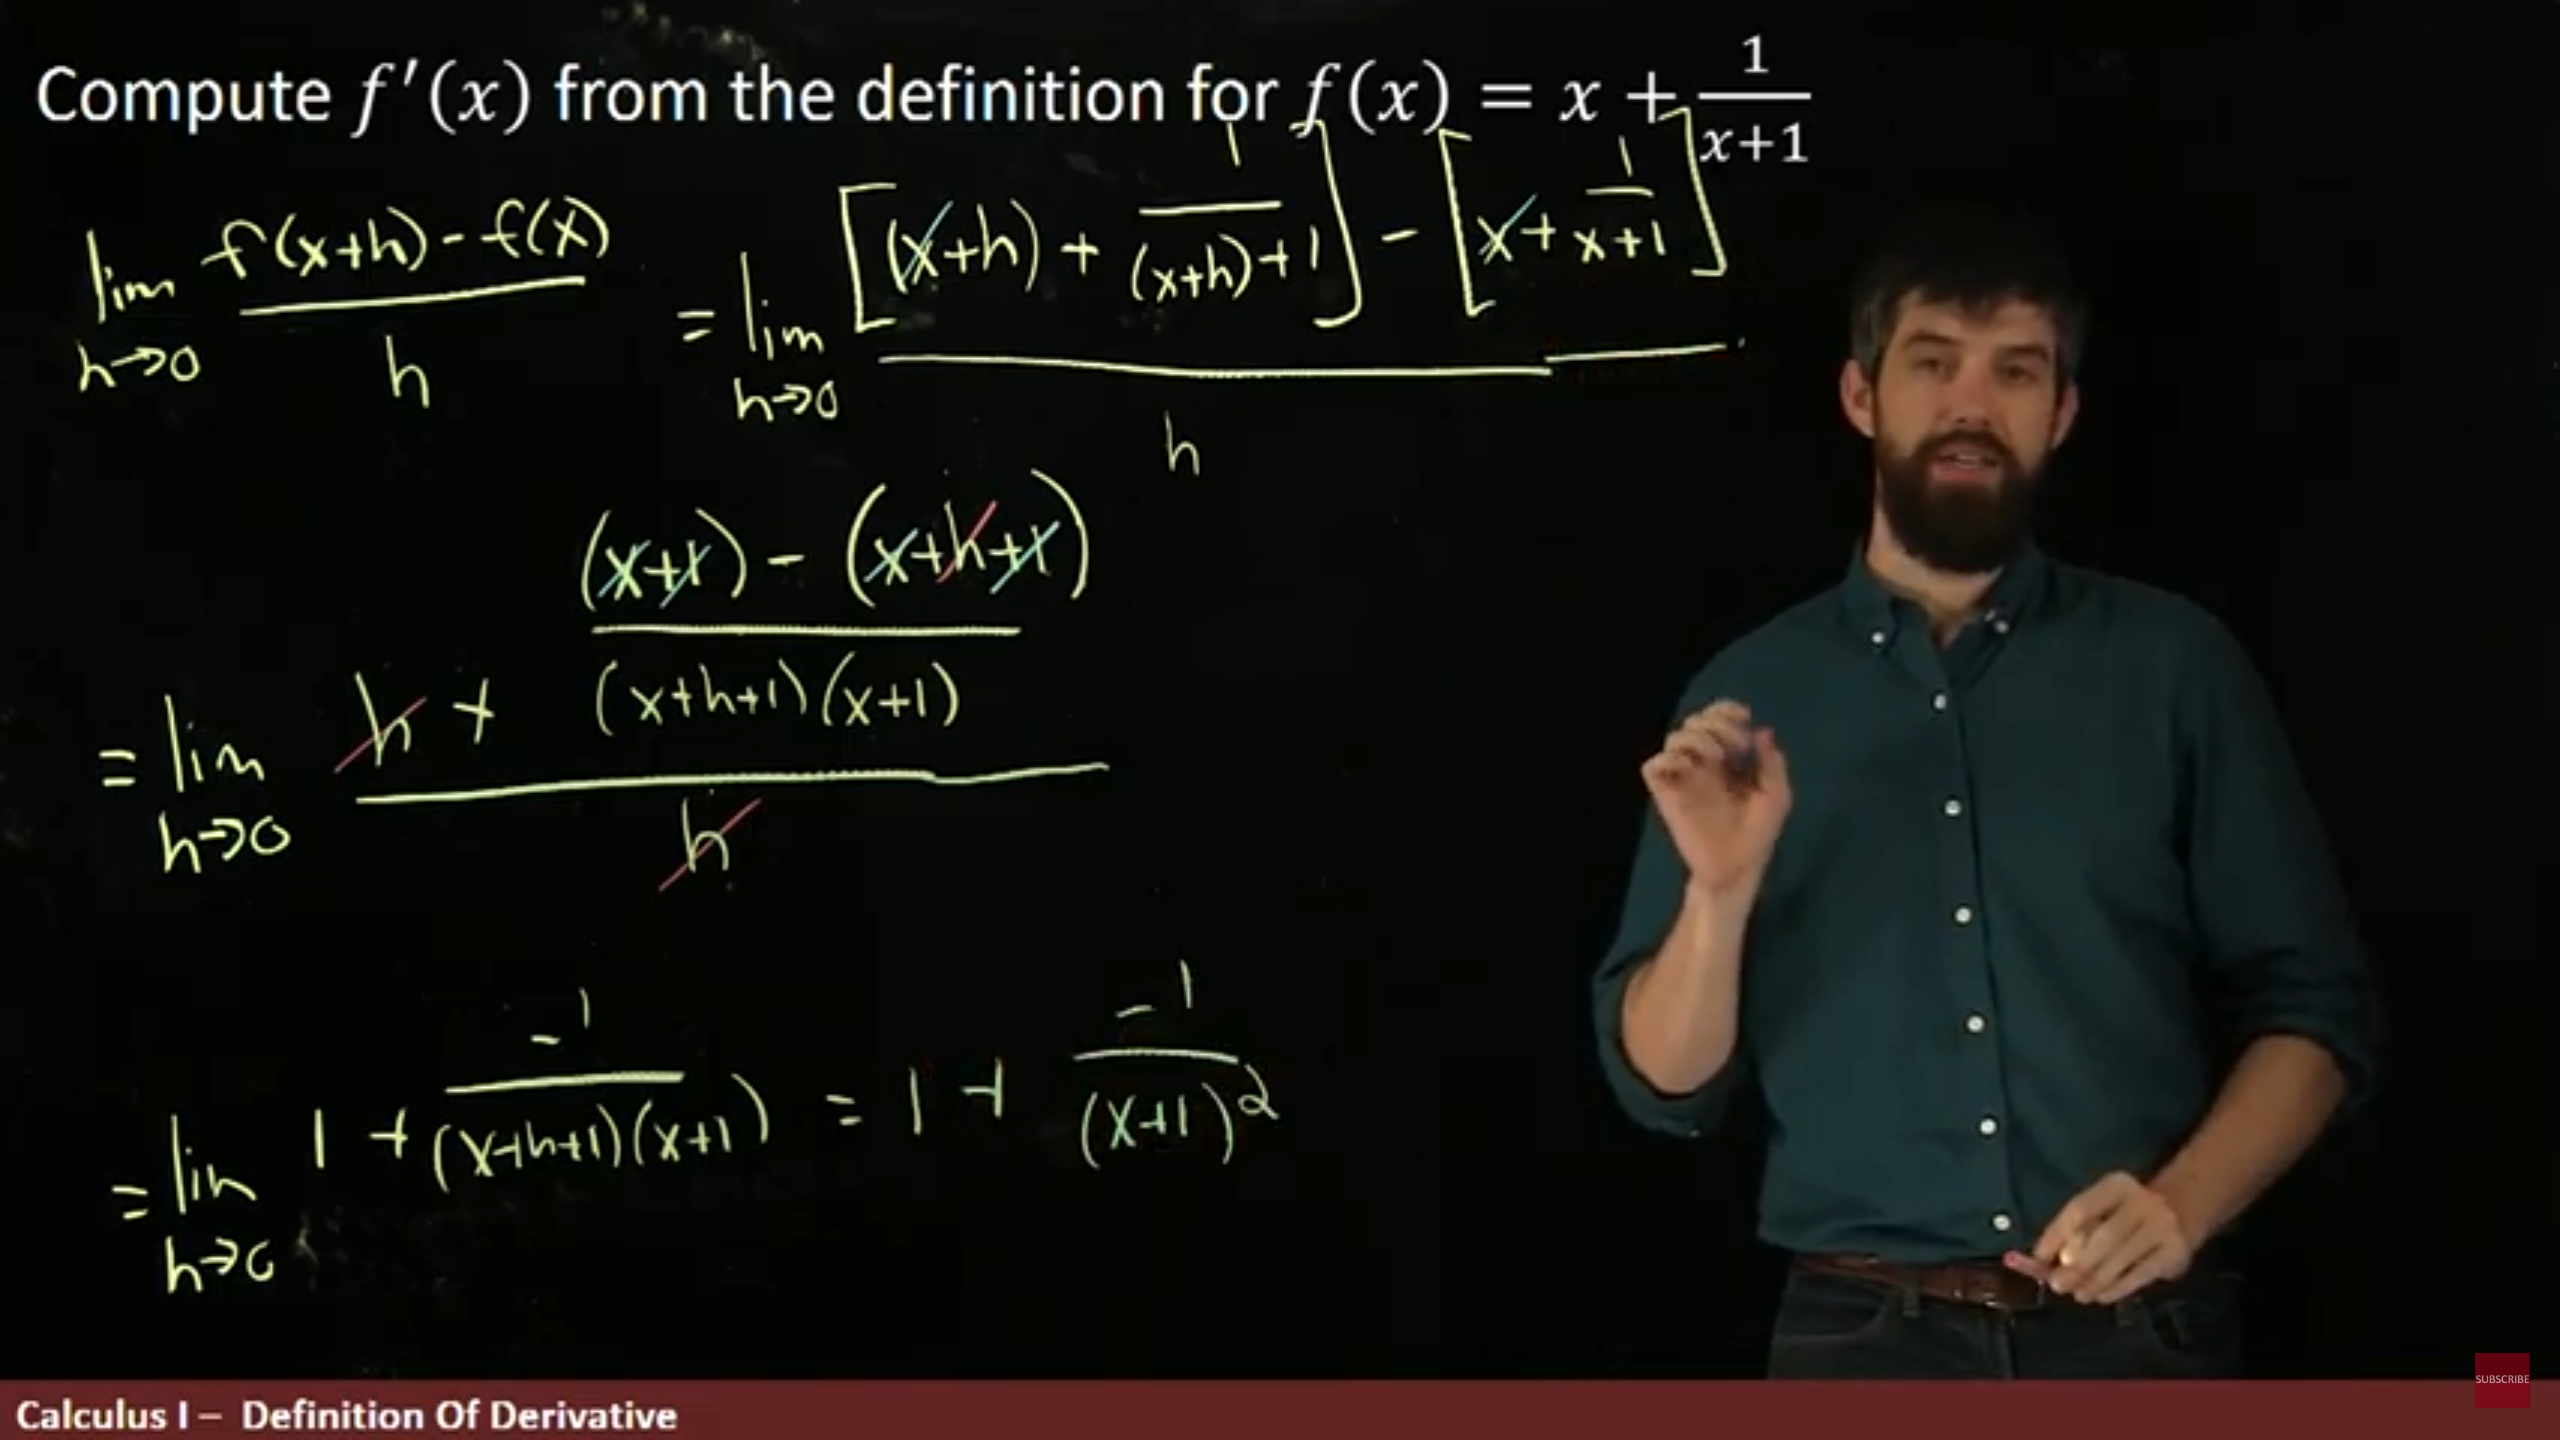 Compute f′(x) from the definition for f(x) = x + 1/(x+1)
lim h→0 (f(x+h) - f(x))/h = lim h→0 ([(x+h) + 1/((x+h)+1)] - [x + 1/(x+1)])/h
= lim h→0 (h + ((x+1) - (x+h+1))/((x+h+1)(x+1)))/h
= lim h→0 1 + -1/((x+h+1)(x+1)) = 1 + -1/(x+1)²
Calculus I – Definition Of Derivative
SUBSCRIBE